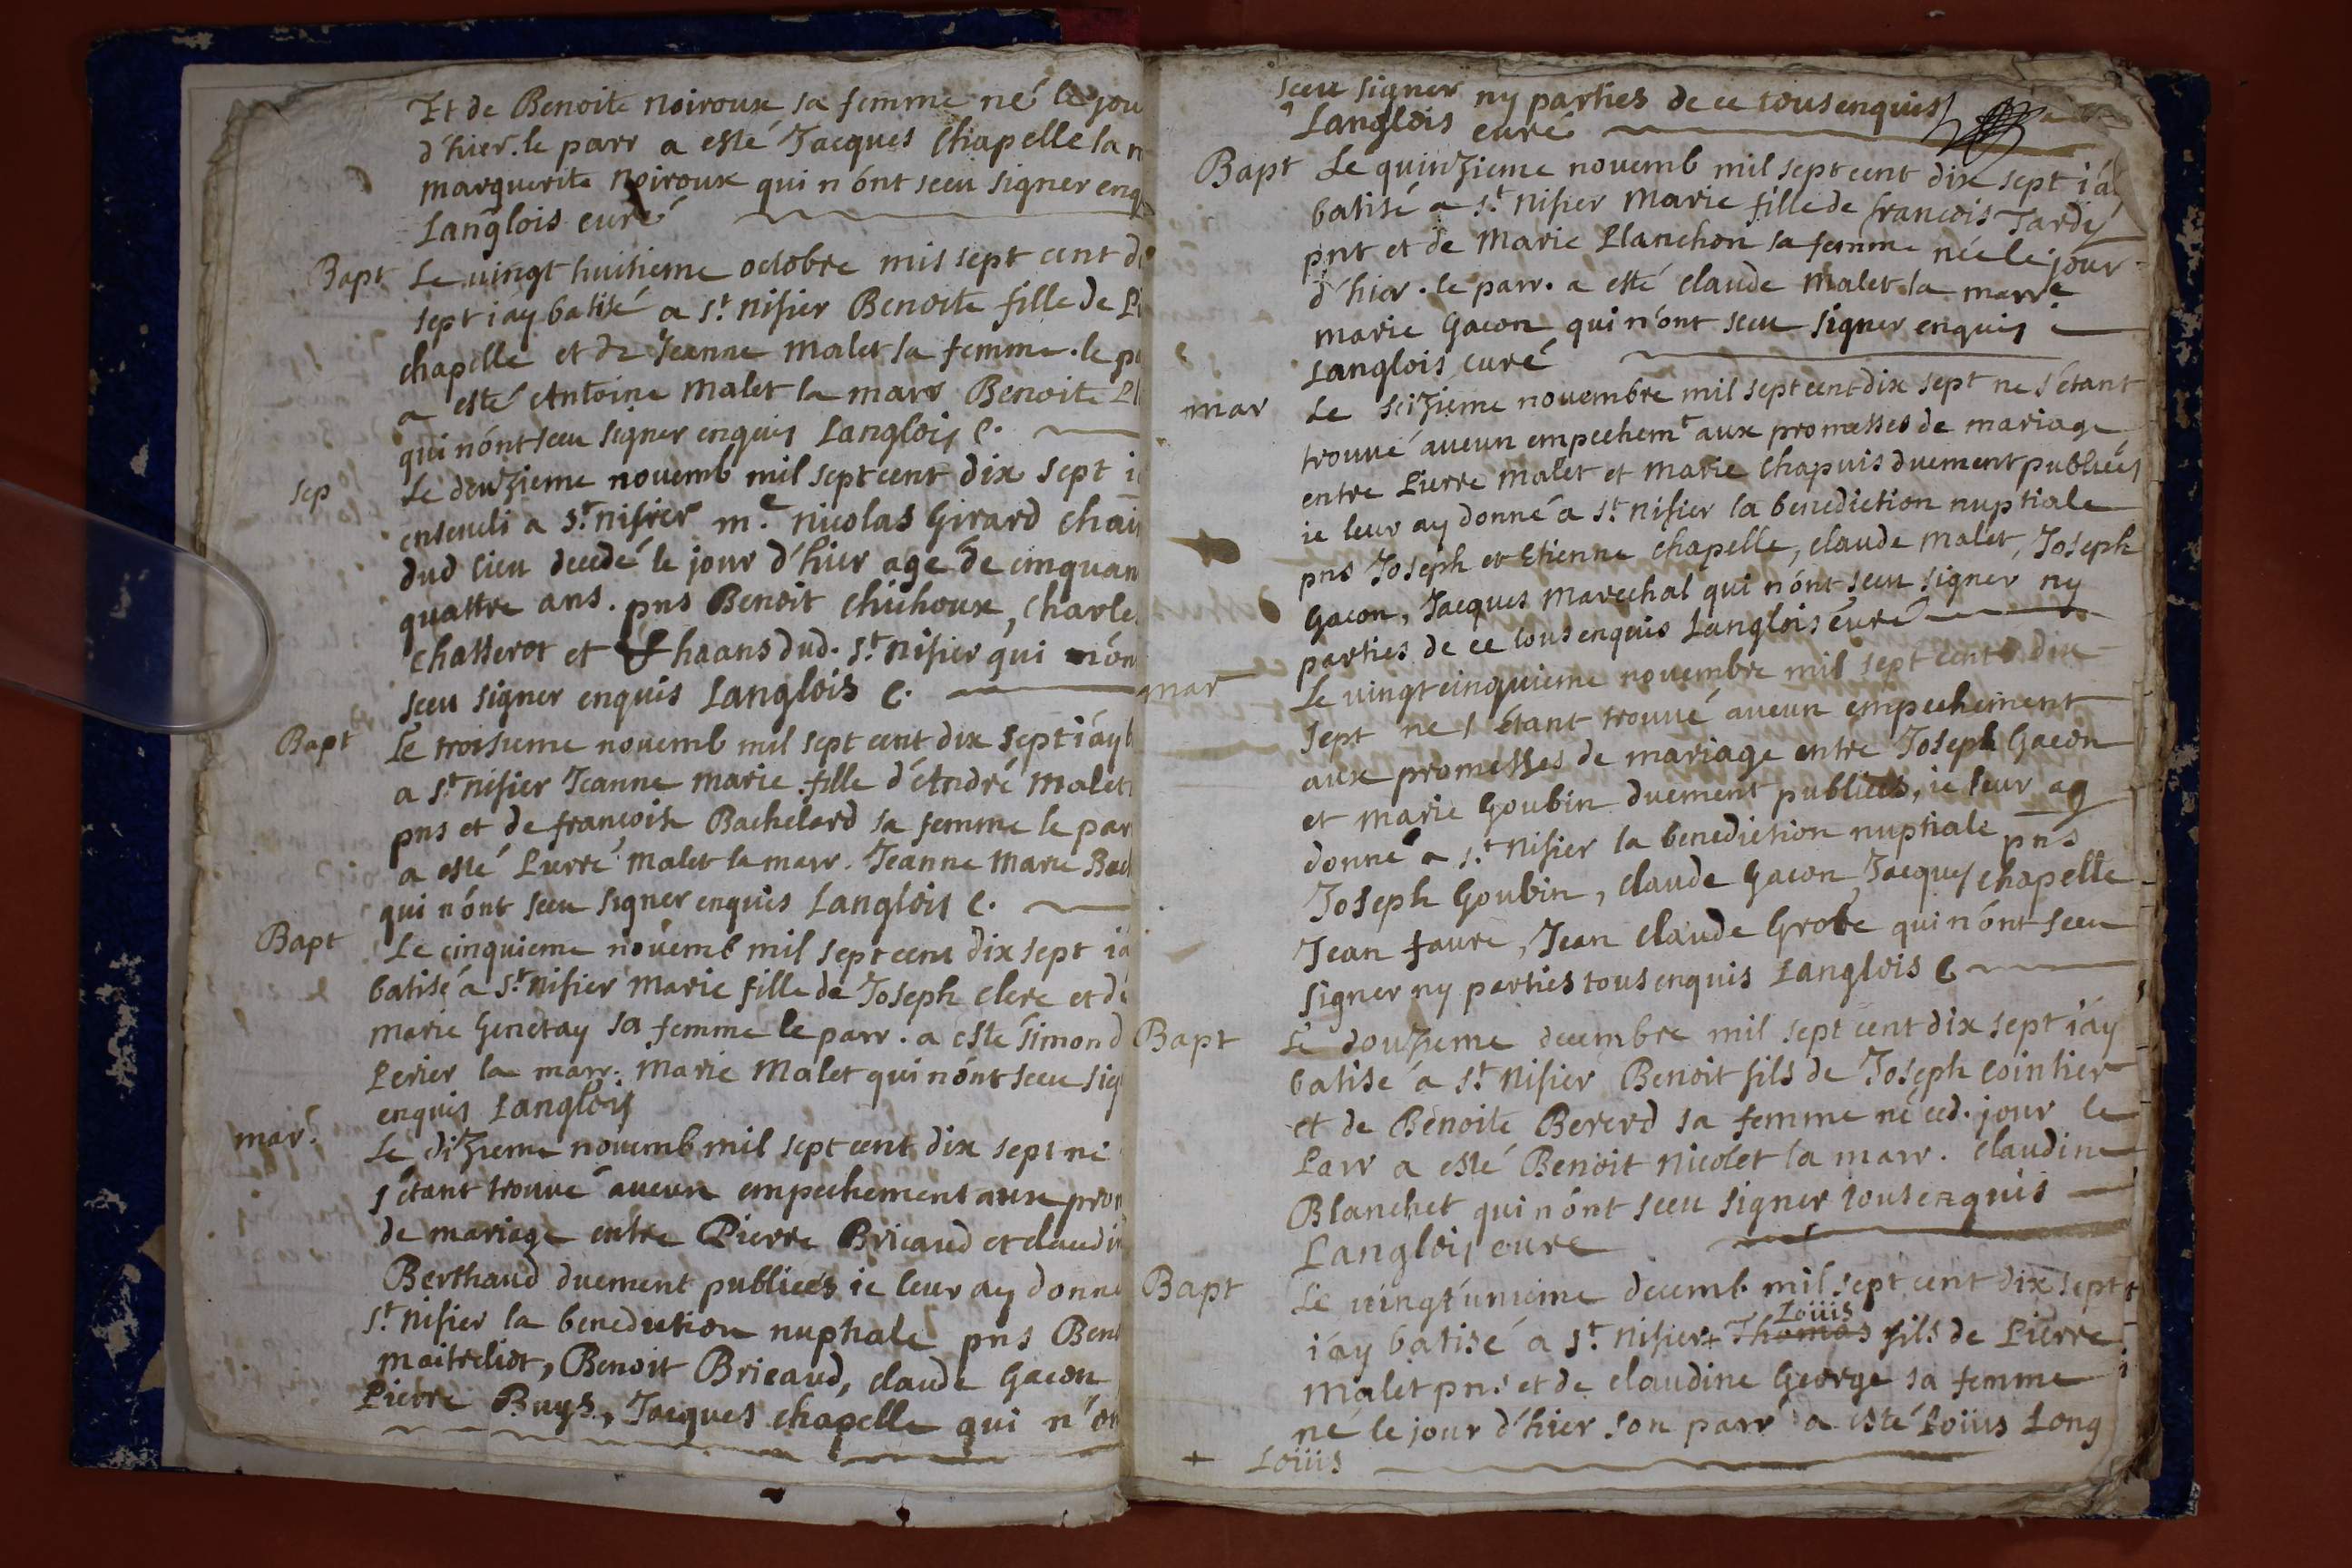 Et de Benoite Noiroux sa femme né le jou
d'hier. le parr a esté Jacques Chapelle la m
marguerite Noiroux qui n'ont sceu signer enq
Langlois curé
Bapt Le vingt huitieme octobre mil sept cent di
sept i'ay batisé a St. Nisier Benoite fille de Pi
chapelle et de Jeanne Malet sa femme. le pa
a esté Antoine Malet la marr Benoite
qui n'ont sceu signer enquis Langlois C.
sep Le deuzieme novemb mil sept cent dix sept i
enseueli a St. Nisier me. Nicolas Girard chai
dud lieu decedé le jour d'hier agé de cinquan
quattre ans. pns Benoit Chichoux, Charle
Chatterot et haans dud. St. Nisier qui n'on
sceu signer enquis Langlois C.
Bapt Le troisieme novemb mil sept cent dix sept i'ay b
a St. Nisier Jeanne Marie fille d'André Malet
pns et de francoise Bachelard sa femme le par
a esté Pierre Malet la marr. Jeanne Marie Bac
qui n'ont sceu signer enquis Langlois C.
Bapt Le cinquieme novemb mil sept cent dix sept i'a
batisé a St. Nisier Marie fille de Joseph Clerc et de
Marie Genetay sa femme le parr. a esté Simond
Perier la marr. Marie Malet qui n'ont sceu sig
enquis Langlois
mar. Le dizieme novemb mil sept cent dix sept ne
s'étant trouvé aucun empechement aux prom
de mariage entre Pierre Bricaud et claudin
Berthaud duement publiées ie leur ay donne
St. Nisier la benediction nuptiale pns Ben
maitreliot, Benoit Bricaud, claude Gacon
Pierre Buys, Jacques chapelle qui n'on
sceu signer ny parties de ce tous enquis
Langlois curé
Bapt Le quinzieme novemb mil sept cent dix sept i'a
batisé a St. Nisier Marie fille de francois Tardy
pnt et de Marie Planchon sa femme née le jour
d'hier. le parr. a esté claude Malet la marre
marie Gacon qui n'ont sceu signer enquis
Langlois curé
mar Le seizieme novembre mil sept cent dix sept ne s'étant
trouvé aucun empechemt aux promesses de mariage
entre Pierre Malet et Marie Chapuis duement publiées
ie leur ay donné a St. Nisier la benediction nuptiale
pns Joseph et Etienne Chapelle, claude Malet, Joseph
Gacon, Jacques Marechal qui n'ont sceu signer ny
parties de ce tous enquis Langlois curé
mar Le vingt cinquieme novembre mil sept cent dix
sept ne s'étant trouvé aucun empechement
aux promesses de mariage entre Joseph Gacon
et Marie Goubin duement publiées, ie leur ay
donné a St. Nisier la benediction nuptiale pns
Joseph Goubin, claude Gacon, Jacques chapelle
Jean faure, Jean claude Grobe qui n'ont sceu
signer ny parties tous enquis Langlois C
Bapt Le douzieme decembre mil sept cent dix sept i'ay
batisé a St. Nisier Benoit fils de Joseph Cointier
et de Benoite Bererd sa femme né ced. jour le
Parr a esté Benoit Nicolet la marr. Claudine
Blanchet qui n'ont sceu signer tous enquis
Langlois curé
Bapt Le vingt unieme decemb. mil sept cent dix sept
Loüis
i'ay batisé a St. Nisier + Thomas fils de Pierre
Malet pns et de claudine George sa femme
né le jour d'hier son parr a esté Loüis Long
+ Loüis